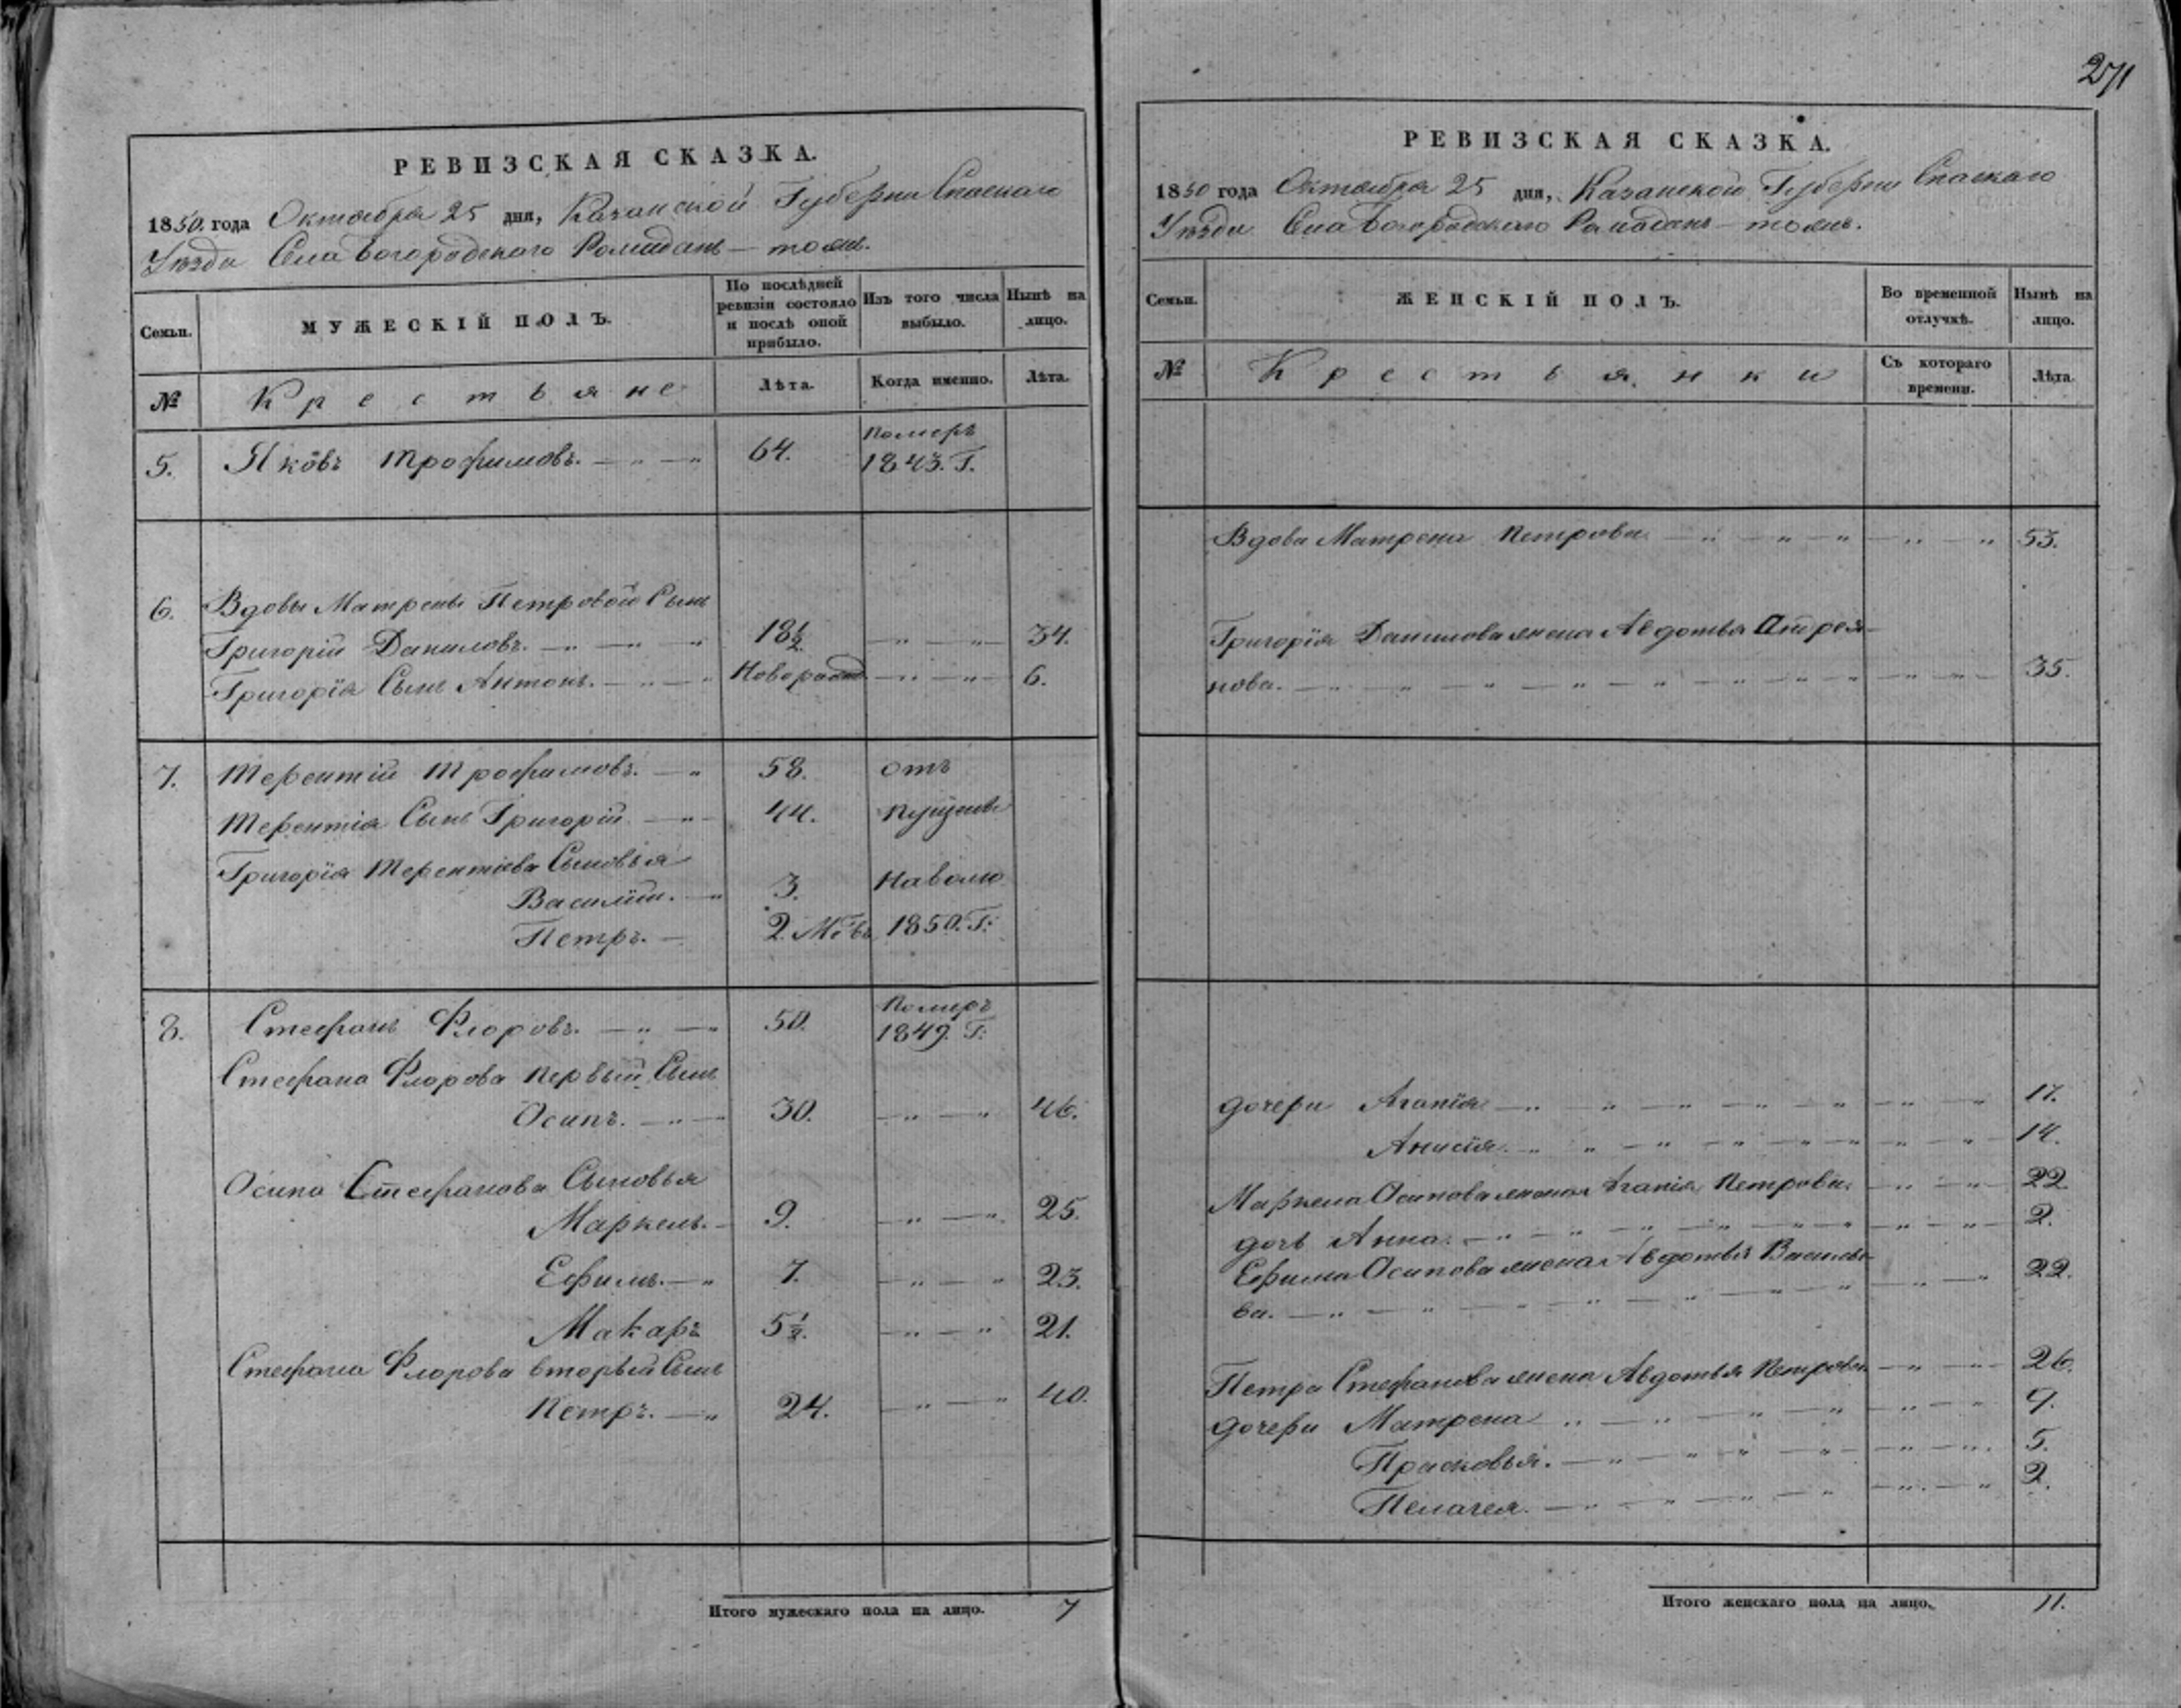 271
РЕВИЗСКАЯ СКАЗКА.
1850. года Октября 25 дня, Казанской Губернии Спаскаго
Уѣзда Села Богородскаго Рамадань тожъ.
Семьи. МУЖЕСКІЙ ПОЛЪ. По послѣдней ревизіи состояло и послѣ оной прибыло. Изъ того числа выбыло. Нынѣ на лицо.
№ Крестьяне Лѣта. Когда именно. Лѣта.
5. Яковъ Трофимовъ. 64. Померъ 1843. Г.
6. Вдовы Матрены Петровой Сынъ
Григорій Даниловъ. 18½ 34.
Григорія Сынъ Антонъ. Новорожд. 6.
7. Терентій Трофимовъ. 58. отъ
Терентія Сынъ Григорій 44. пущены
Григорія Терентіева Сыновья
Василій. 3. На волю
Петръ. 2. Мѣ. 1850. Г:
8. Стефанъ Флоровъ. 50. Померъ 1849. Г:
Стефана Флорова первый Сынъ
Осипъ. 30. 46.
Осипа Стефанова Сыновья
Маркелъ. 9. 25.
Ефимъ. 7. 23.
Макаръ 5½. 21.
Стефана Флорова вторый Сынъ
Петръ. 24. 40.
Итого мужескаго пола на лицо. 7
РЕВИЗСКАЯ СКАЗКА.
1850 года Октября 25 дня, Казанской Губернии Спаскаго
Уѣзда Села Богородскаго Рамадань тожъ.
Семьи. ЖЕНСКІЙ ПОЛЪ. Во временной отлучкѣ. Нынѣ на лицо.
№ Крестьянки Съ котораго времени. Лѣта.
Вдова Матрена Петрова 53.
Григорія Данилова жена Авдотья Андрея-
нова. 35.
дочери Агапія 17.
Анисія. 14.
Маркела Осипова жена Агапія Петрова. 22
дочь Анна. 2.
Ефима Осипова жена Авдотья Василье-
ва. 22.
Петра Стефанова жена Авдотья Петрова. 26.
дочери Матрена 9.
Прасковья. 5.
Пелагея. 2.
Итого женскаго пола на лицо. 11.